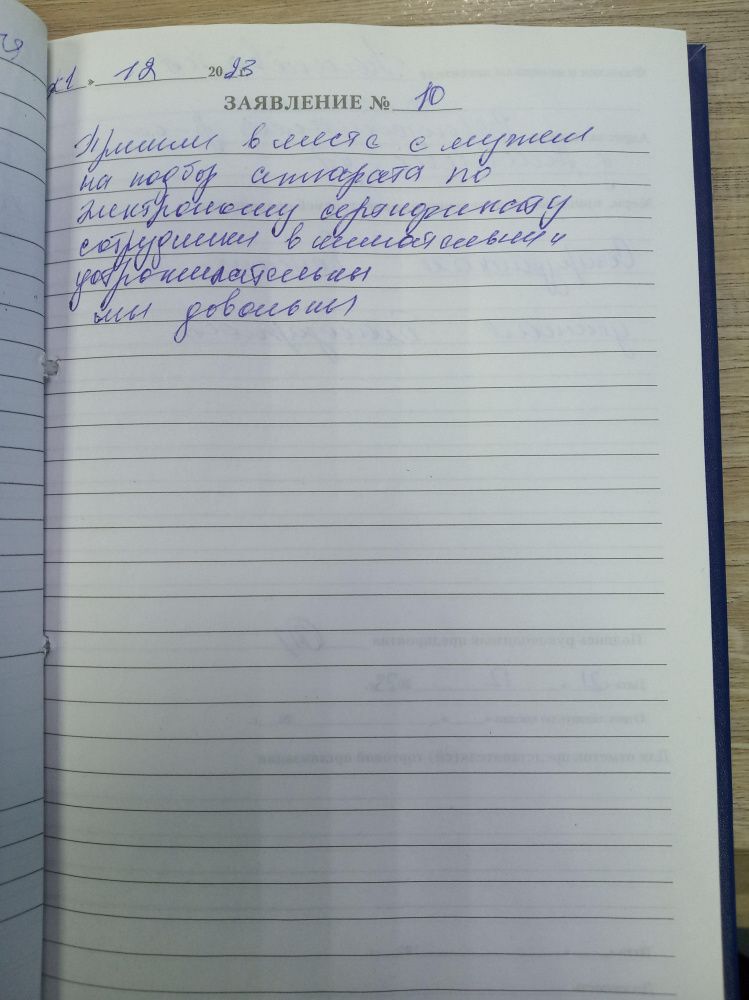 21 » 12 2023 г.
ЗАЯВЛЕНИЕ № 10
Пришли в месте с мужем
на подбор аппарата по
электроному сертификату
сотрудники внимательный и
доброжелательны
мы довольны